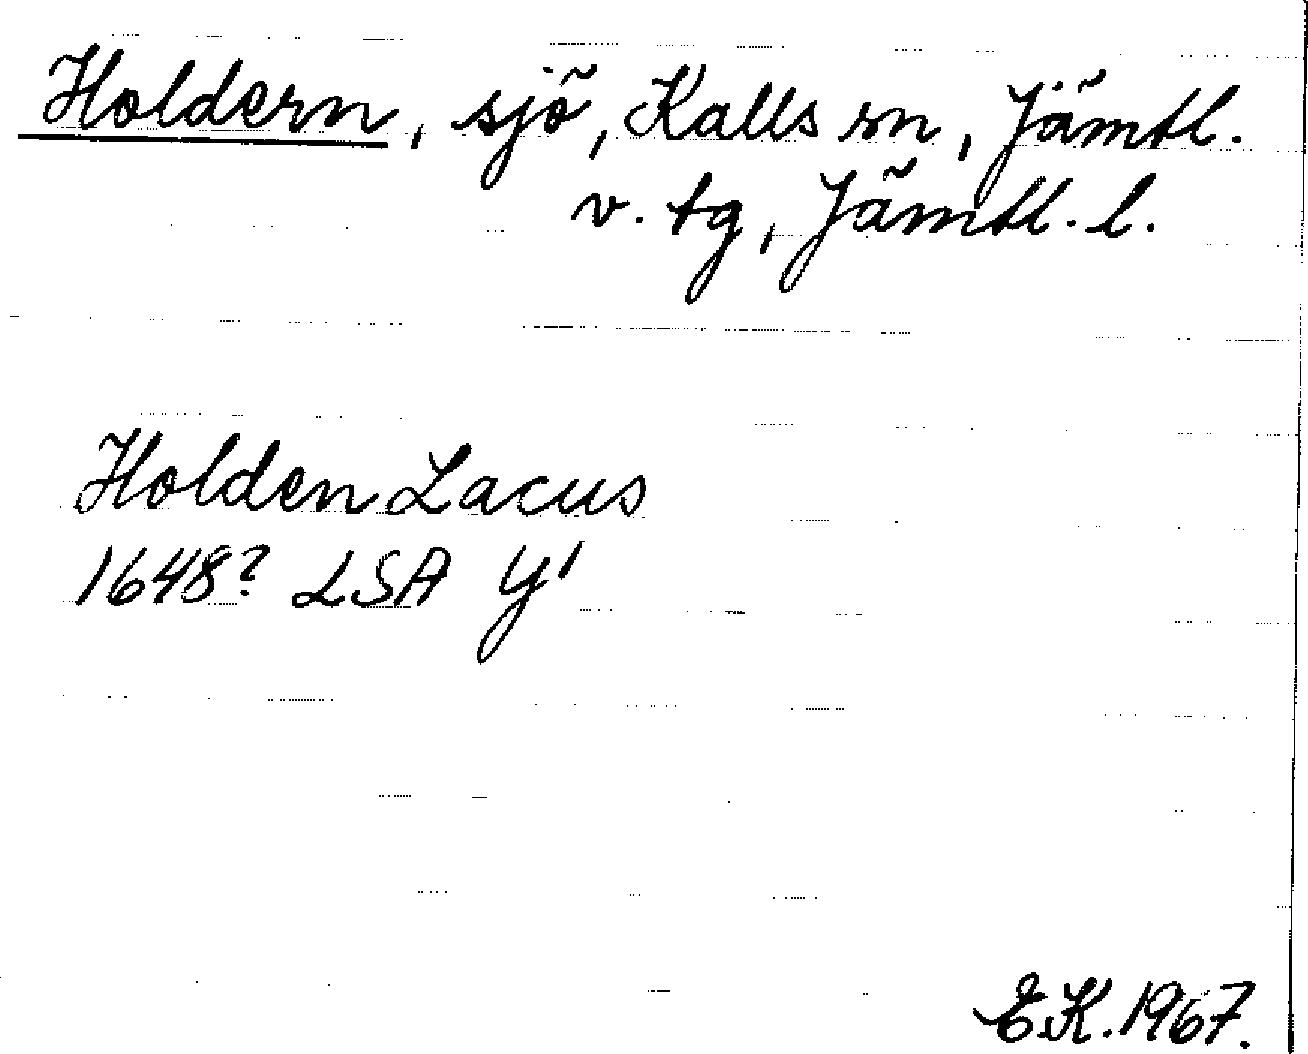 Holdern, sjö, Kalls sn, Jämtl.
v. tg, Jämtl. l.
Holden Lacus
1648? LSA Y1
E.K. 1967.